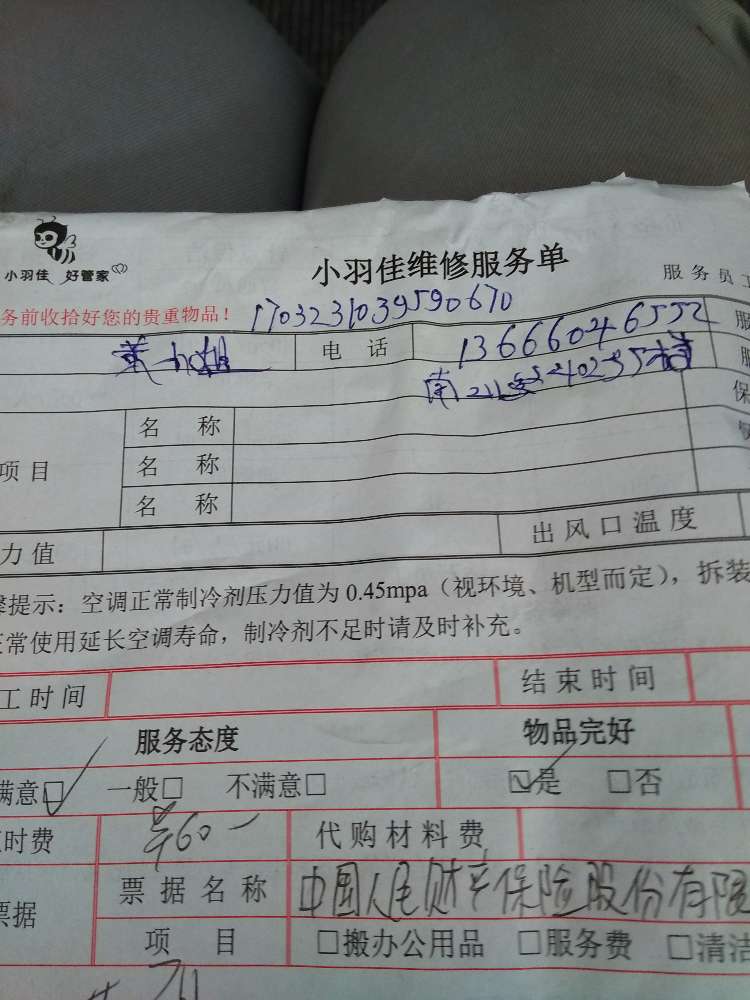 小羽佳 好管家
小羽佳维修服务单
服务员工
务前收拾好您的贵重物品！
1703231039590670
电话
13666046552
服
服
保
项目
名称
名称
名称
力值
出风口温度
提示：空调正常制冷剂压力值为0.45mpa（视环境、机型而定），拆装
常使用延长空调寿命，制冷剂不足时请及时补充。
工时间
结束时间
服务态度
物品完好
满意□ 一般□ 不满意□
☑是 □否
时费
代购材料费
票据
票据名称
中国人民财产保险股份有限
项目
□搬办公用品 □服务费 □清洁